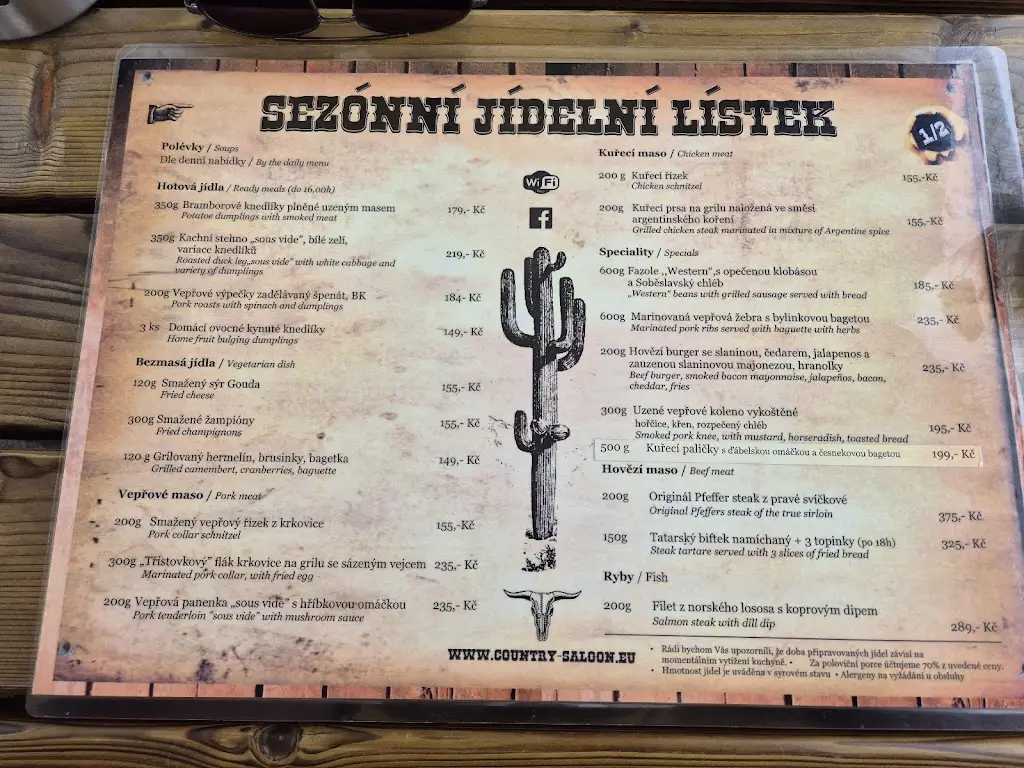 SEZÓNNÍ JÍDELNÍ LÍSTEK
1/2
Polévky / Soups
Dle denní nabídky / By the daily menu
Hotová jídla / Ready meals (do 16,00h)
350g Bramborové knedlíky plněné uzeným masem 179,- Kč
Potatoe dumplings with smoked meat
350g Kachní stehno „sous vide", bílé zelí,
variace knedlíků 219,- Kč
Roasted duck leg„sous vide" with white cabbage and
variety of dumplings
200g Vepřové výpečky zadělávaný špenát, BK 184- Kč
Pork roasts with spinach and dumplings
3 ks Domácí ovocné kynuté knedlíky 149,- Kč
Home fruit bulging dumplings
Bezmasá jídla / Vegetarian dish
120g Smažený sýr Gouda 155,- Kč
Fried cheese
300g Smažené žampióny 155,- Kč
Fried champignons
120 g Grilovaný hermelín, brusinky, bagetka 149,- Kč
Grilled camembert, cranberries, baguette
Vepřové maso / Pork meat
200g Smažený vepřový řízek z krkovice 155,- Kč
Pork collar schnitzel
300g „Třístovkový" flák krkovice na grilu se sázeným vejcem 235,- Kč
Marinated pork collar, with fried egg
200g Vepřová panenka „sous vide" s hříbkovou omáčkou 235,- Kč
Pork tenderloin "sous vide" with mushroom sauce
WiFi
f
WWW.COUNTRY-SALOON.EU
Kuřecí maso / Chicken meat
200 g Kuřecí řízek 155,-Kč
Chicken schnitzel
200g Kuřecí prsa na grilu naložená ve směsi
argentinského koření 155,-Kč
Grilled chicken steak marinated in mixture of Argentine spice
Speciality / Specials
600g Fazole ,,Western",s opečenou klobásou
a Soběslavský chléb 185,- Kč
„Western" beans with grilled sausage served with bread
600g Marinovaná vepřová žebra s bylinkovou bagetou 235,- Kč
Marinated pork ribs served with baguette with herbs
200g Hovězí burger se slaninou, čedarem, jalapenos a
zauzenou slaninovou majonezou, hranolky 235,- Kč
Beef burger, smoked bacon mayonnaise, jalapeños, bacon,
cheddar, fries
300g Uzené vepřové koleno vykoštěné
hořčice, křen, rozpečený chléb 195,- Kč
Smoked pork knee, with mustard, horseradish, toasted bread
500 g Kuřecí paličky s ďábelskou omáčkou a česnekovou bagetou 199,- Kč
Hovězí maso / Beef meat
200g Originál Pfeffer steak z pravé svíčkové 375,- Kč
Original Pfeffers steak of the true sirloin
150g Tatarský biftek namíchaný + 3 topinky (po 18h) 325,- Kč
Steak tartare served with 3 slices of fried bread
Ryby / Fish
200g Filet z norského lososa s koprovým dipem 289,- Kč
Salmon steak with dill dip
• Rádi bychom Vás upozornili, že doba připravovaných jídel závisí na
momentálním vytížení kuchyně. • Za poloviční porce účtujeme 70% z uvedené ceny.
• Hmotnost jídel je uváděna v syrovém stavu • Alergeny na vyžádání u obsluhy